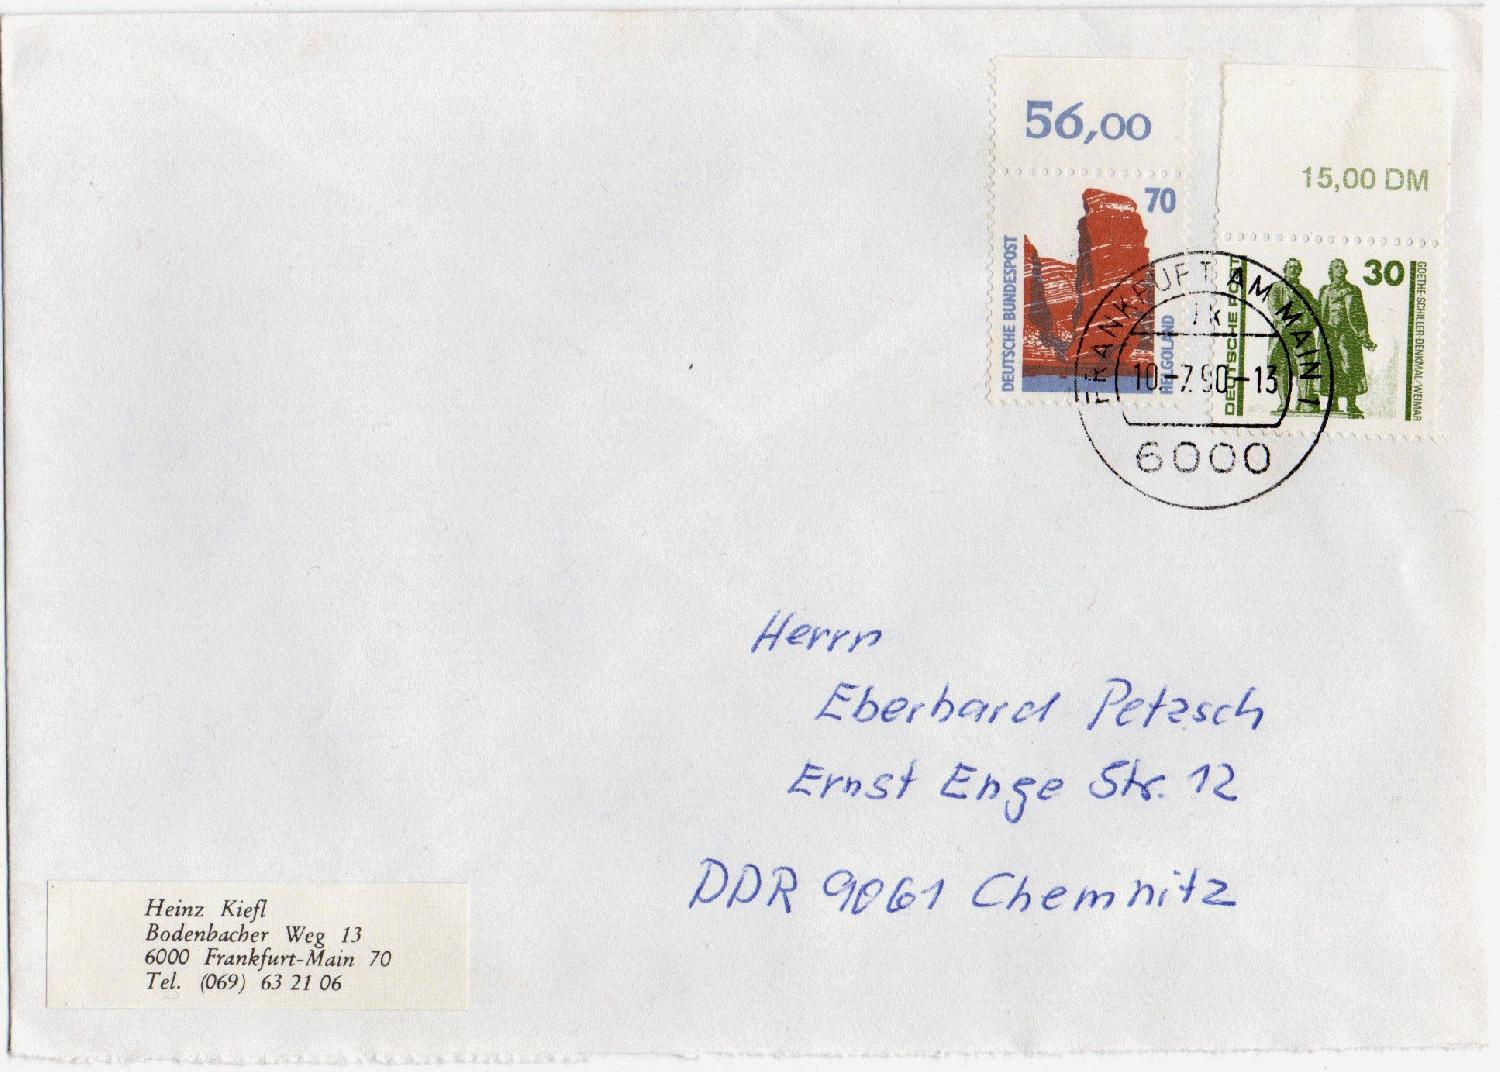 56,00
15,00 DM
70
DEUTSCHE BUNDESPOST
HELGOLAND
30
DEUTSCHE POST
GOETHE-SCHILLER-DENKMAL/WEIMAR
FRANKFURT AM MAIN 1
10.-7.90-13
6000
Herrn
Eberhard Petzsch
Ernst Enge Str. 12
DDR 9061 Chemnitz
Heinz Kiefl
Bodenbacher Weg 13
6000 Frankfurt-Main 70
Tel. (069) 63 21 06